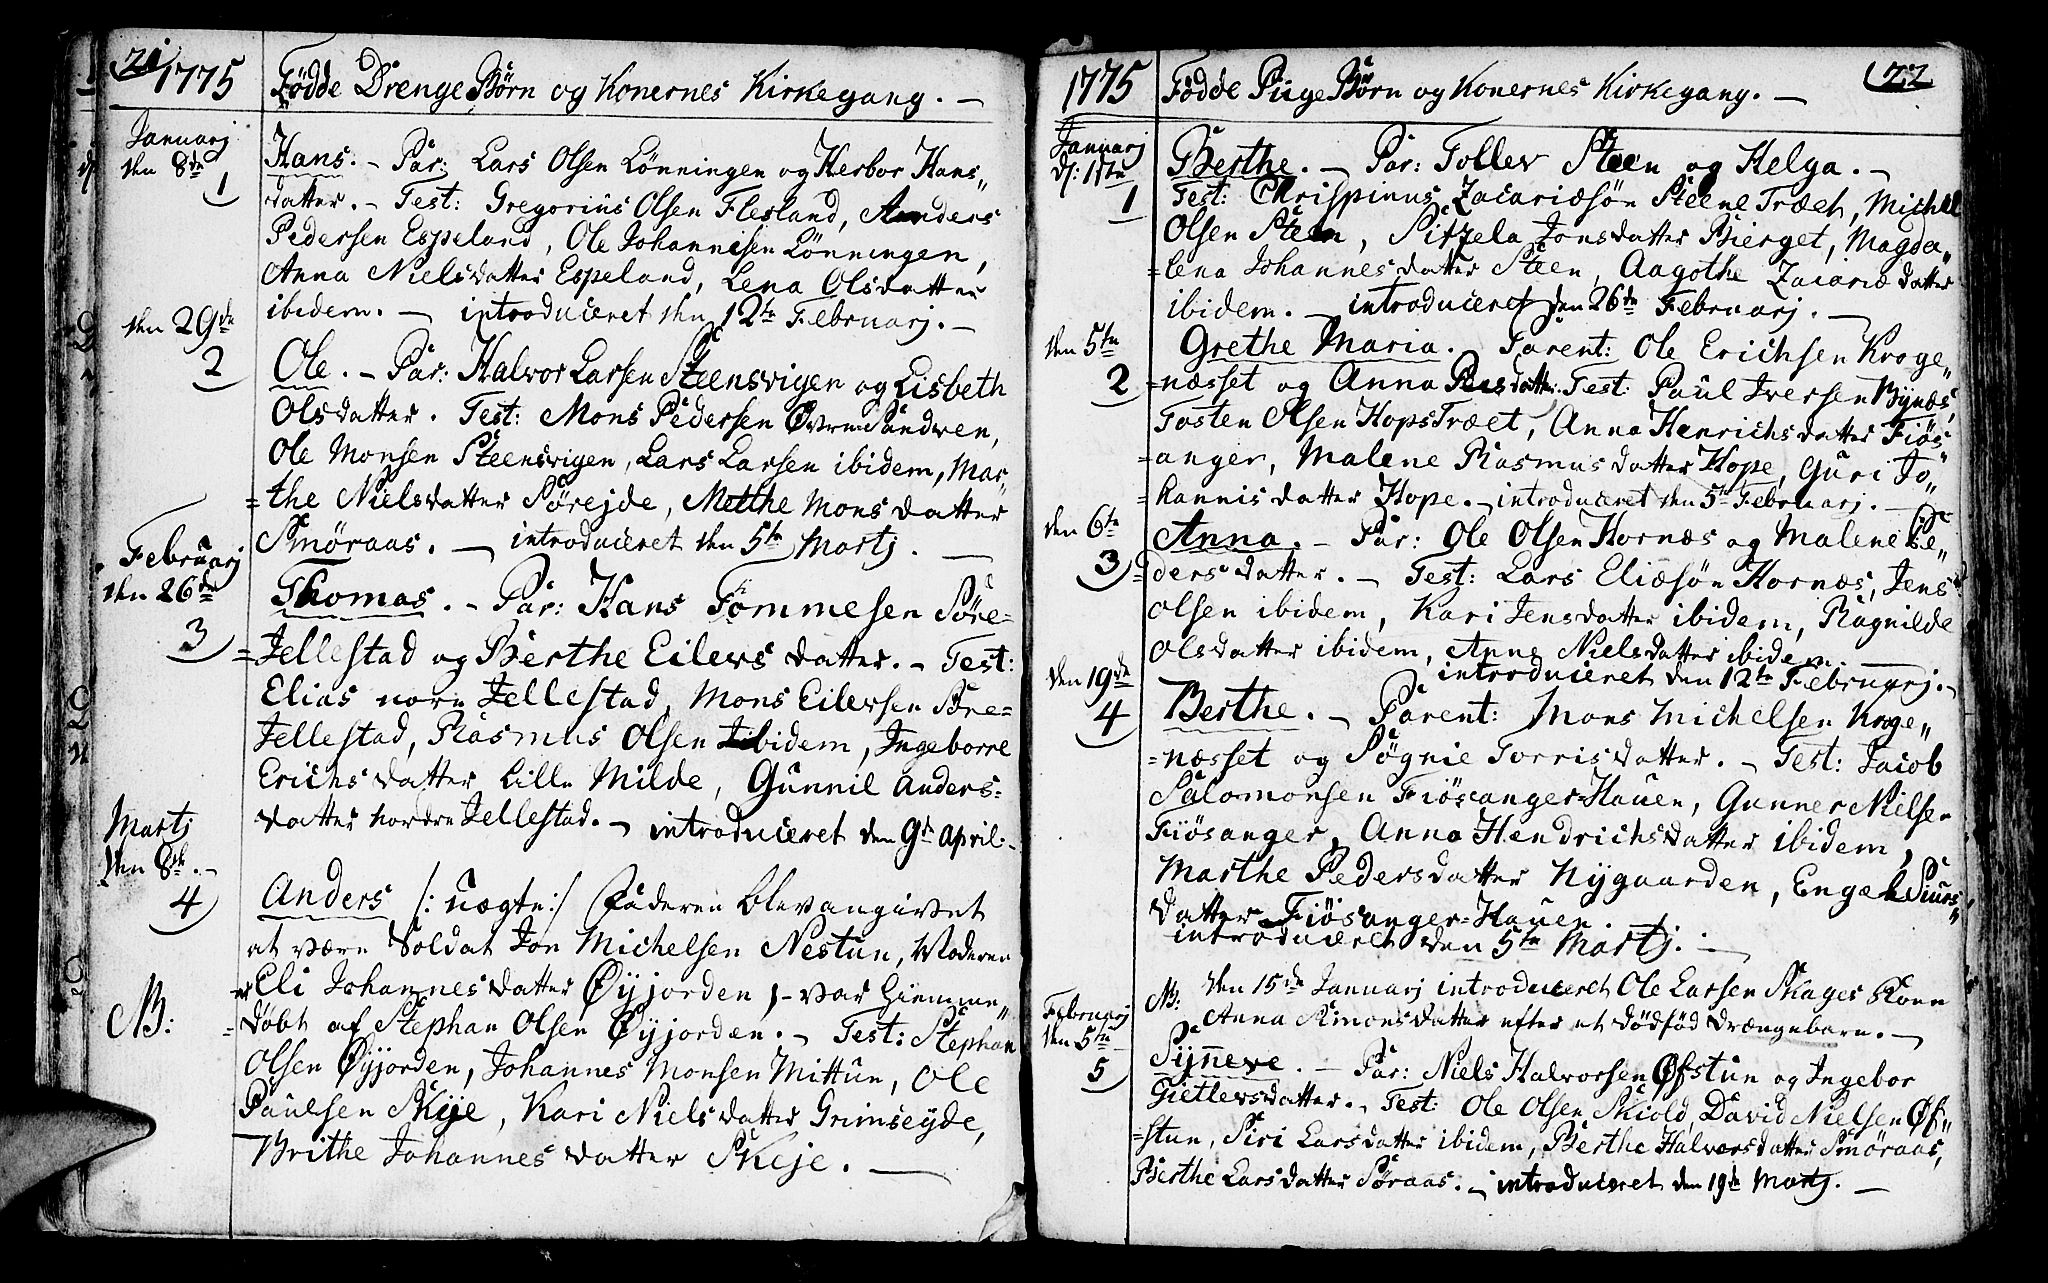 21
1775
Fødde Drenge Børn og Konernes Kirkegang. –
Januarj
den 8de
1
Hans. – Par: Lars Olsen Lönningen og Herbor Hans„
datter. – Test: Gregorius Olsen Flesland, Anders
Pedersen Espeland, Ole Johannisen Lönningen,
Anna Nielsdatter Espeland, Lena Olsdatter
ibidem. – introduceret den 12te Februarj. –
den 29de
2
Ole. – Par: Halvor Larsen Steensvigen og Lisbeth
Olsdatter. Test: Mons Pedersen Øvre Sandven,
Ole Monsen Steensvigen, Lars Larsen ibidem, Mar„
=the Nielsdatter Sørejde, Metthe Monsdatter
Smøraas. – introduceret den 5te Martj. –
Februarj
den 26de
3
Thomas. – Par: Hans Tømmesen Søre=
=Jellestad og Berthe Eilersdatter. – Test:
Elias nore Jellestad, Mons Eilersen Søre=
Jellestad, Rasmus Olsen ibidem, Ingeborre
Erichsdatter Lille Milde, Gunnil Anders=
datter nordre Jellestad. – introduceret den 9de April. –
Martj
den 8de. –
4
Anders /: uægte :/ Faderen blev angivet
at være Soldat Jon Michelsen Nestun, Moderen
er Eli Johannesdatter Øyjorden, – var hiemme„
=døbt af Stephan Olsen Øyjorden. – Test: Stephan
NB:
Olsen Øyjorden, Johannes Monsen Mittun, Ole
Paulsen Skeje, Kari Nielsdatter Grimseyde,
Brithe Johannesdatter Skeje. –
1775
Fødde Pige Børn og Konernes Kirkegang. –
22
Januarj
d: 1ste
1
Berthe. – Par: Tollev Steen og Helga. –
Test: Chrispinus Zacariæsön Steene Træet, Michel
Olsen Steen, Sitzela Jonsdatter Bierget, Magda„
=lena Johannesdatter Steen, Aagothe Zacariædatter
ibidem. – introduceret den 26de Februarj. –
den 5te
2
Grethe Maria. – Parent: Ole Erichsen Kroge„
=næsset og Anna datter. Test: Paul Iversen Bynæs,
Tosten Olsen Hopstræet, Anna Henrichsdatter Fiøs„
=anger, Malene Rasmusdatter Hope, Guri Jo„
=hannisdatter Hope. – introduceret den 5te Februarj. –
den 6te
3
Anna. – Par: Ole Olsen Hornæs og Malene Pe„
=dersdatter. – Test: Lars Eliæsön Hornæs, Jens
Olsen ibidem, Kari Jensdatter ibidem, Ragnilde
Olsdatter ibidem, Anne Nielsdatter ibidem. –
introduceret den 12te Februarj. –
den 19de
4
Berthe. – Parent: Mons Michelsen Kroge„
=næsset og Søgnie Torrisdatter. – Test: Jacob
Salomonsen Fiösanger=Hauen, Gunner Nielsen
Fiösanger, Anna Hendrichsdatter ibidem,
Marthe Pedersdatter Nygaarden, Engæl Siurs„
datter Fiösanger=Hauen.
introduceret den 5te Martj. –
NB: den 15de Januarj introduceret Ole Larsen Skages Kone
Anna Simonsdatter efter et dødfød drængebarn. –
Februarj
den 5te
5
Sÿneve. – Par: Niels Halvorsen Øfstun og Ingebor
Gietlersdatter. – Test: Ole Olsen Skiold, David Nielsen Øf„
=stun, Siri Larsdatter ibidem, Berthe Halvorsdatter Smøraas,
Berthe Larsdatter Søraas. – introduceret den 19de Martj. –